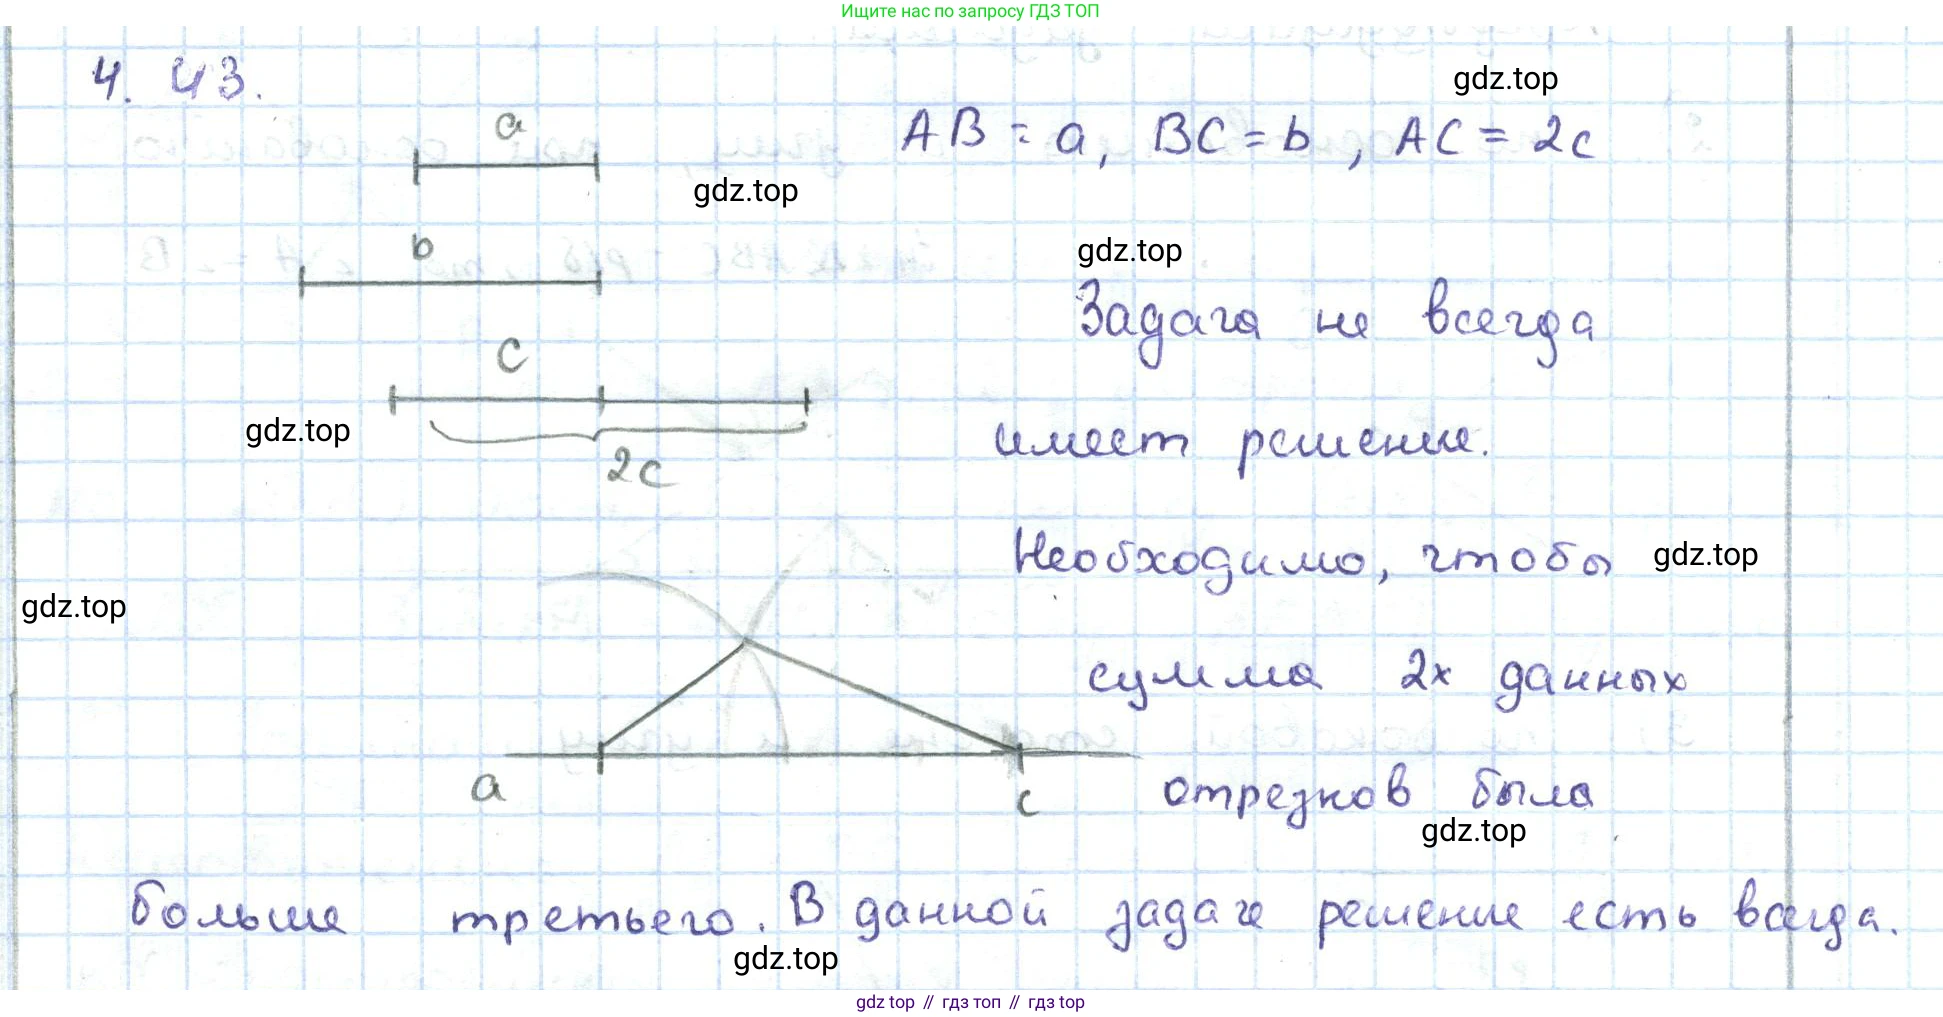 Ищите нас по запросу ГДЗ ТОП
4. 43.
gdz.top
a
AB = a, BC = b, AC = 2c
gdz.top
b
gdz.top
Задача не всегда
c
gdz.top
имеет решение.
2c
Необходимо, чтобы
gdz.top
gdz.top
сумма 2х данных
a
c
отрезков была
gdz.top
больше третьего. В данной задаче решение есть всегда.
gdz.top
gdz top // гдз топ // гдз top